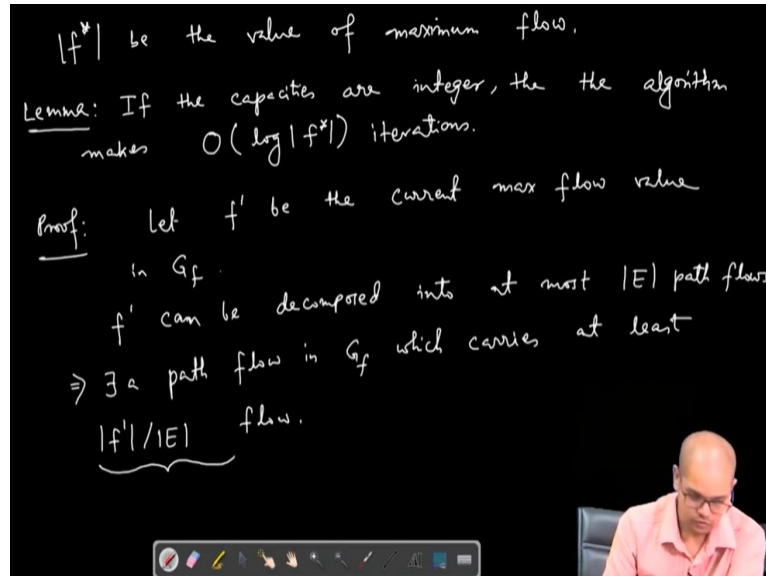 |f*| be the value of maximum flow.
Lemma: If the capacities are integer, the the algorithm
makes O(log|f*|) iterations.
Proof: Let f' be the current max flow value
in G_f.
f' can be decomposed into at most |E| path flows
⇒ ∃ a path flow in G_f which carries at least
|f'|/|E| flow.